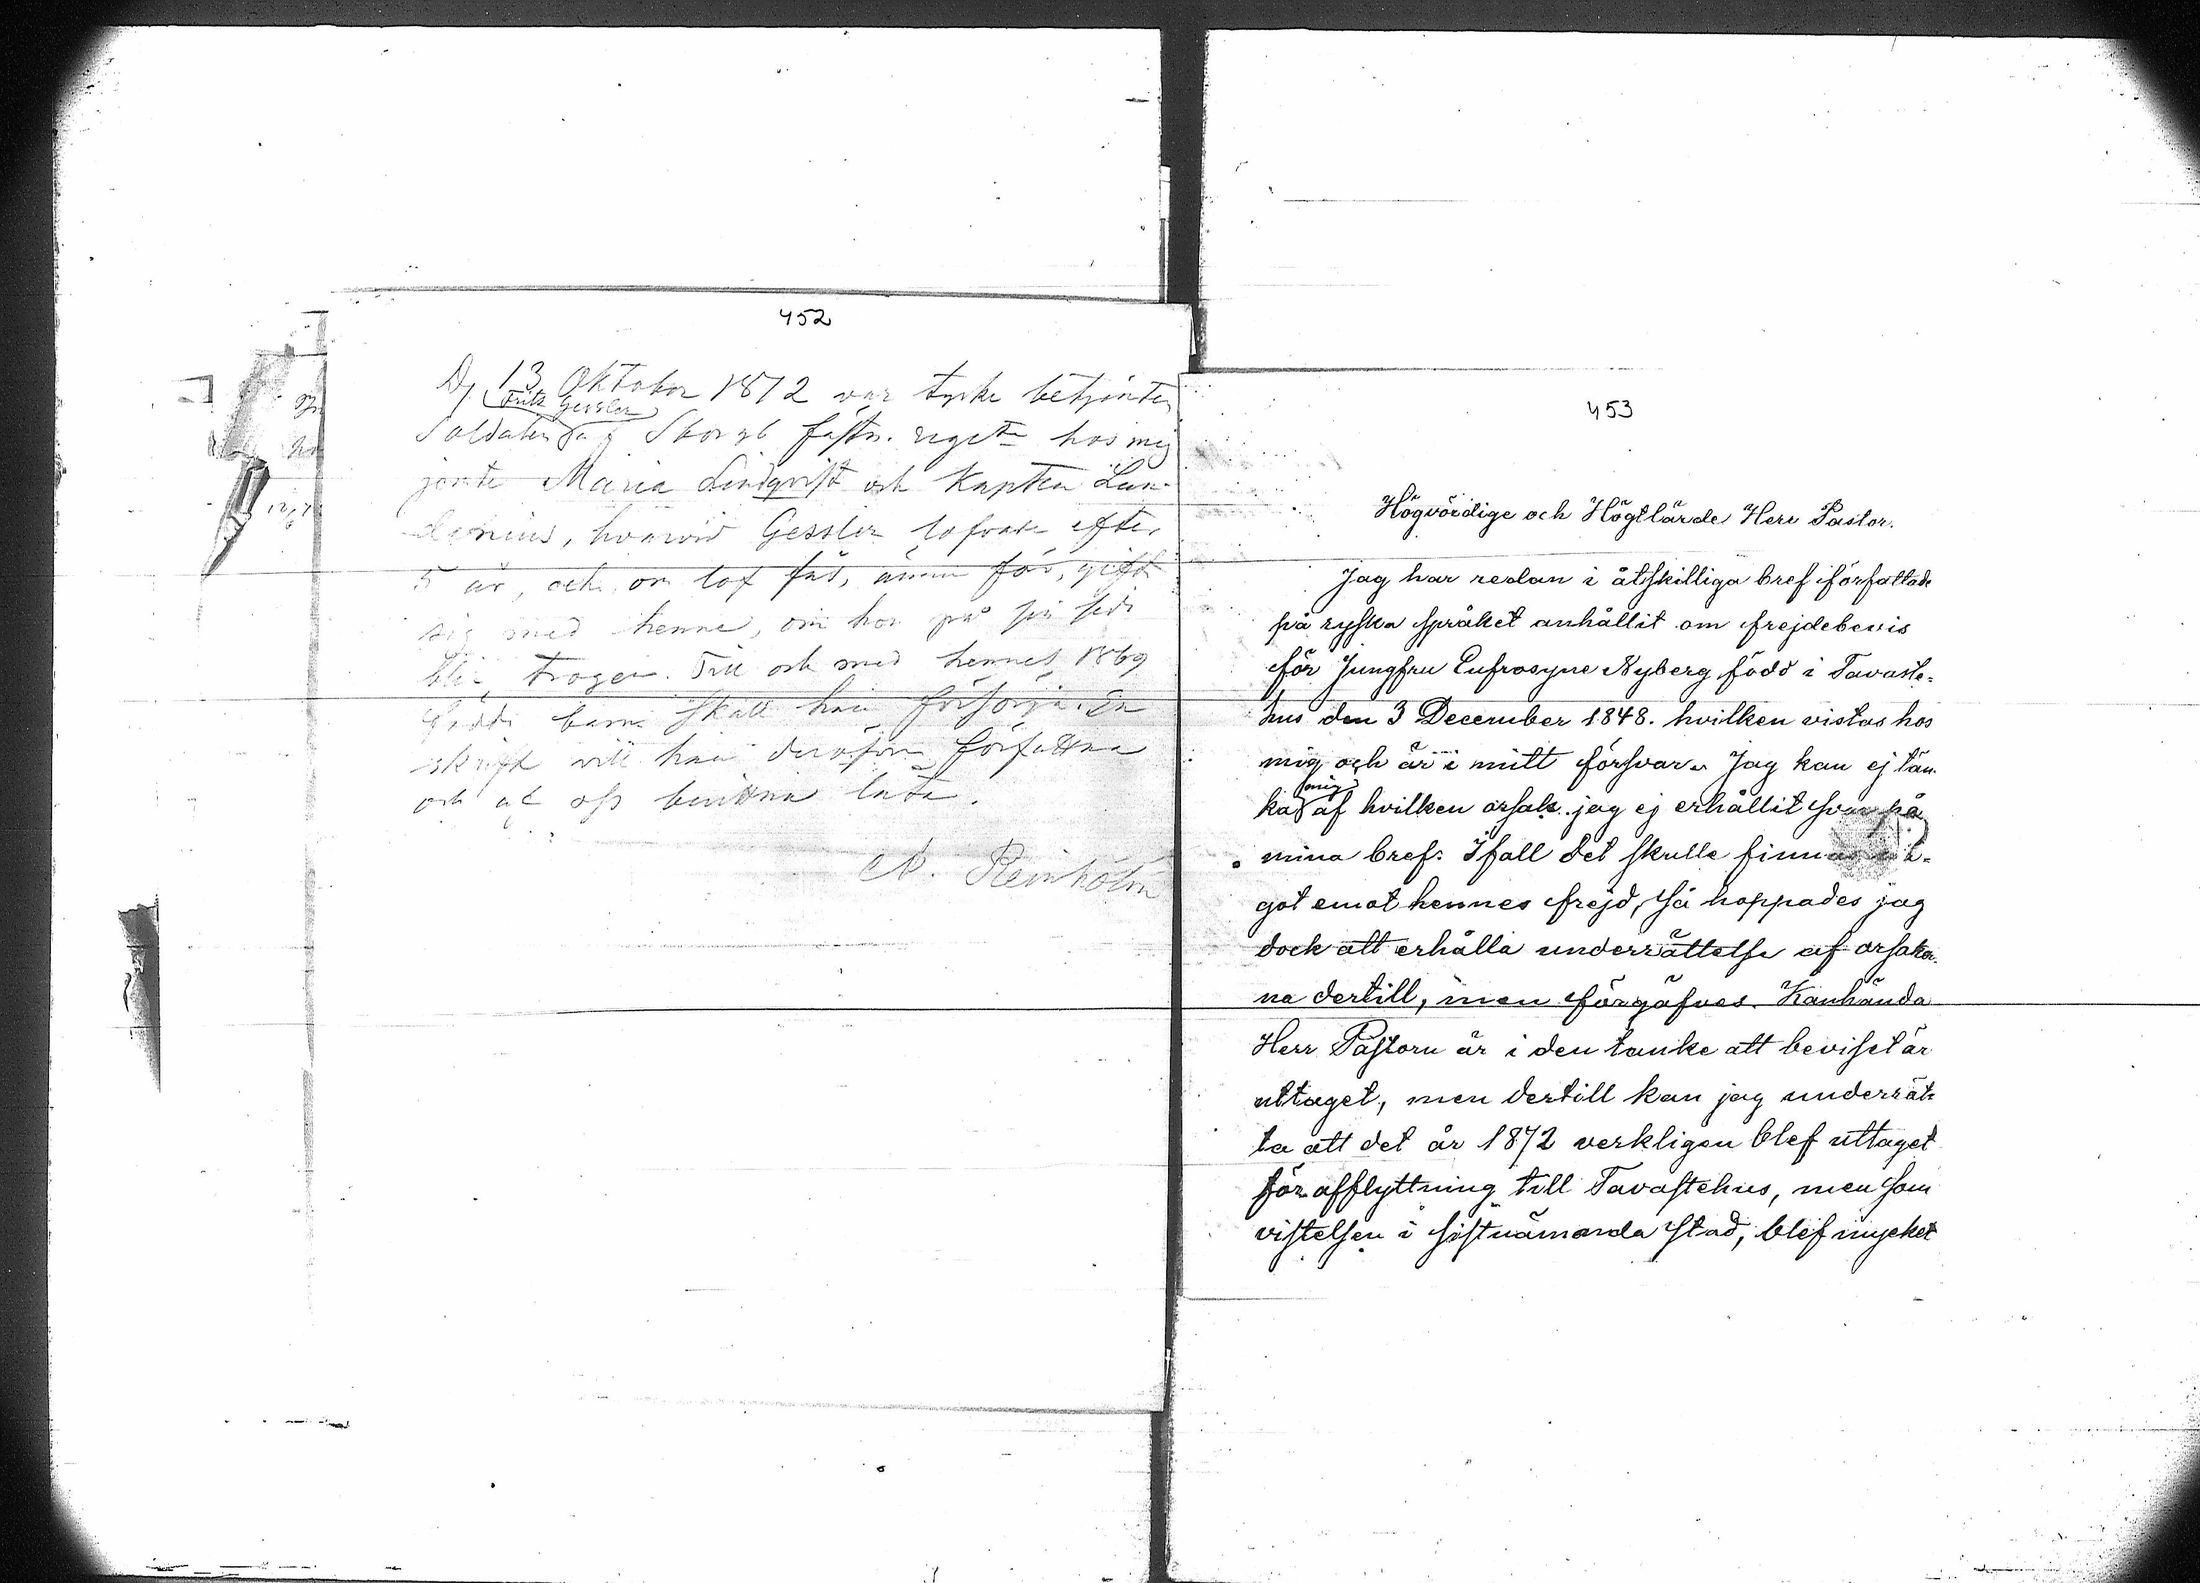 452
D. 13 Oktober 1872 var tyske betjenten
Fritz Gessler
Soldaten fästn. regete hos mig
jemte Maria Lindqvist och Kapten Lun-
denius, hvarvid Gessler lofvade efter
5 år, och om lof fås, ännu för, gifta
sig med henne, om hon på sin sida
blir trogen. Till och med hennes 1869
födde barn skall han försörja. En
skrift vill han författa
och af oss bevittna låta.
A. Reinholm
453
Högvördige och Högtlärde Herr Pastor.
Jag har redan i åtskilliga bref författade
på ryska språket anhållit om frejdebevis
för Jungfru Eufrosyne Nyberg född i Tavaste-
hus den 3 December 1848. hvilken vistas hos
mig och är i mitt försvar. Jag kan ej tän-
mig
ka af hvilken orsak jag ej erhållit svar på
mina bref. Ifall det skulle finnas nå-
got emot hennes frejd, så hoppades jag
dock att erhålla underrättelse af orsaker-
na dertill, men förgäfves. Kanhända
Herr Pastorn är i den tanke att beviset är
uttaget, men dertill kan jag underrät-
ta att det år 1872 verkligen blef uttaget
för afflyttning till Tavastehus, men som
vistelsen i sistnämnda stad, blef mycket